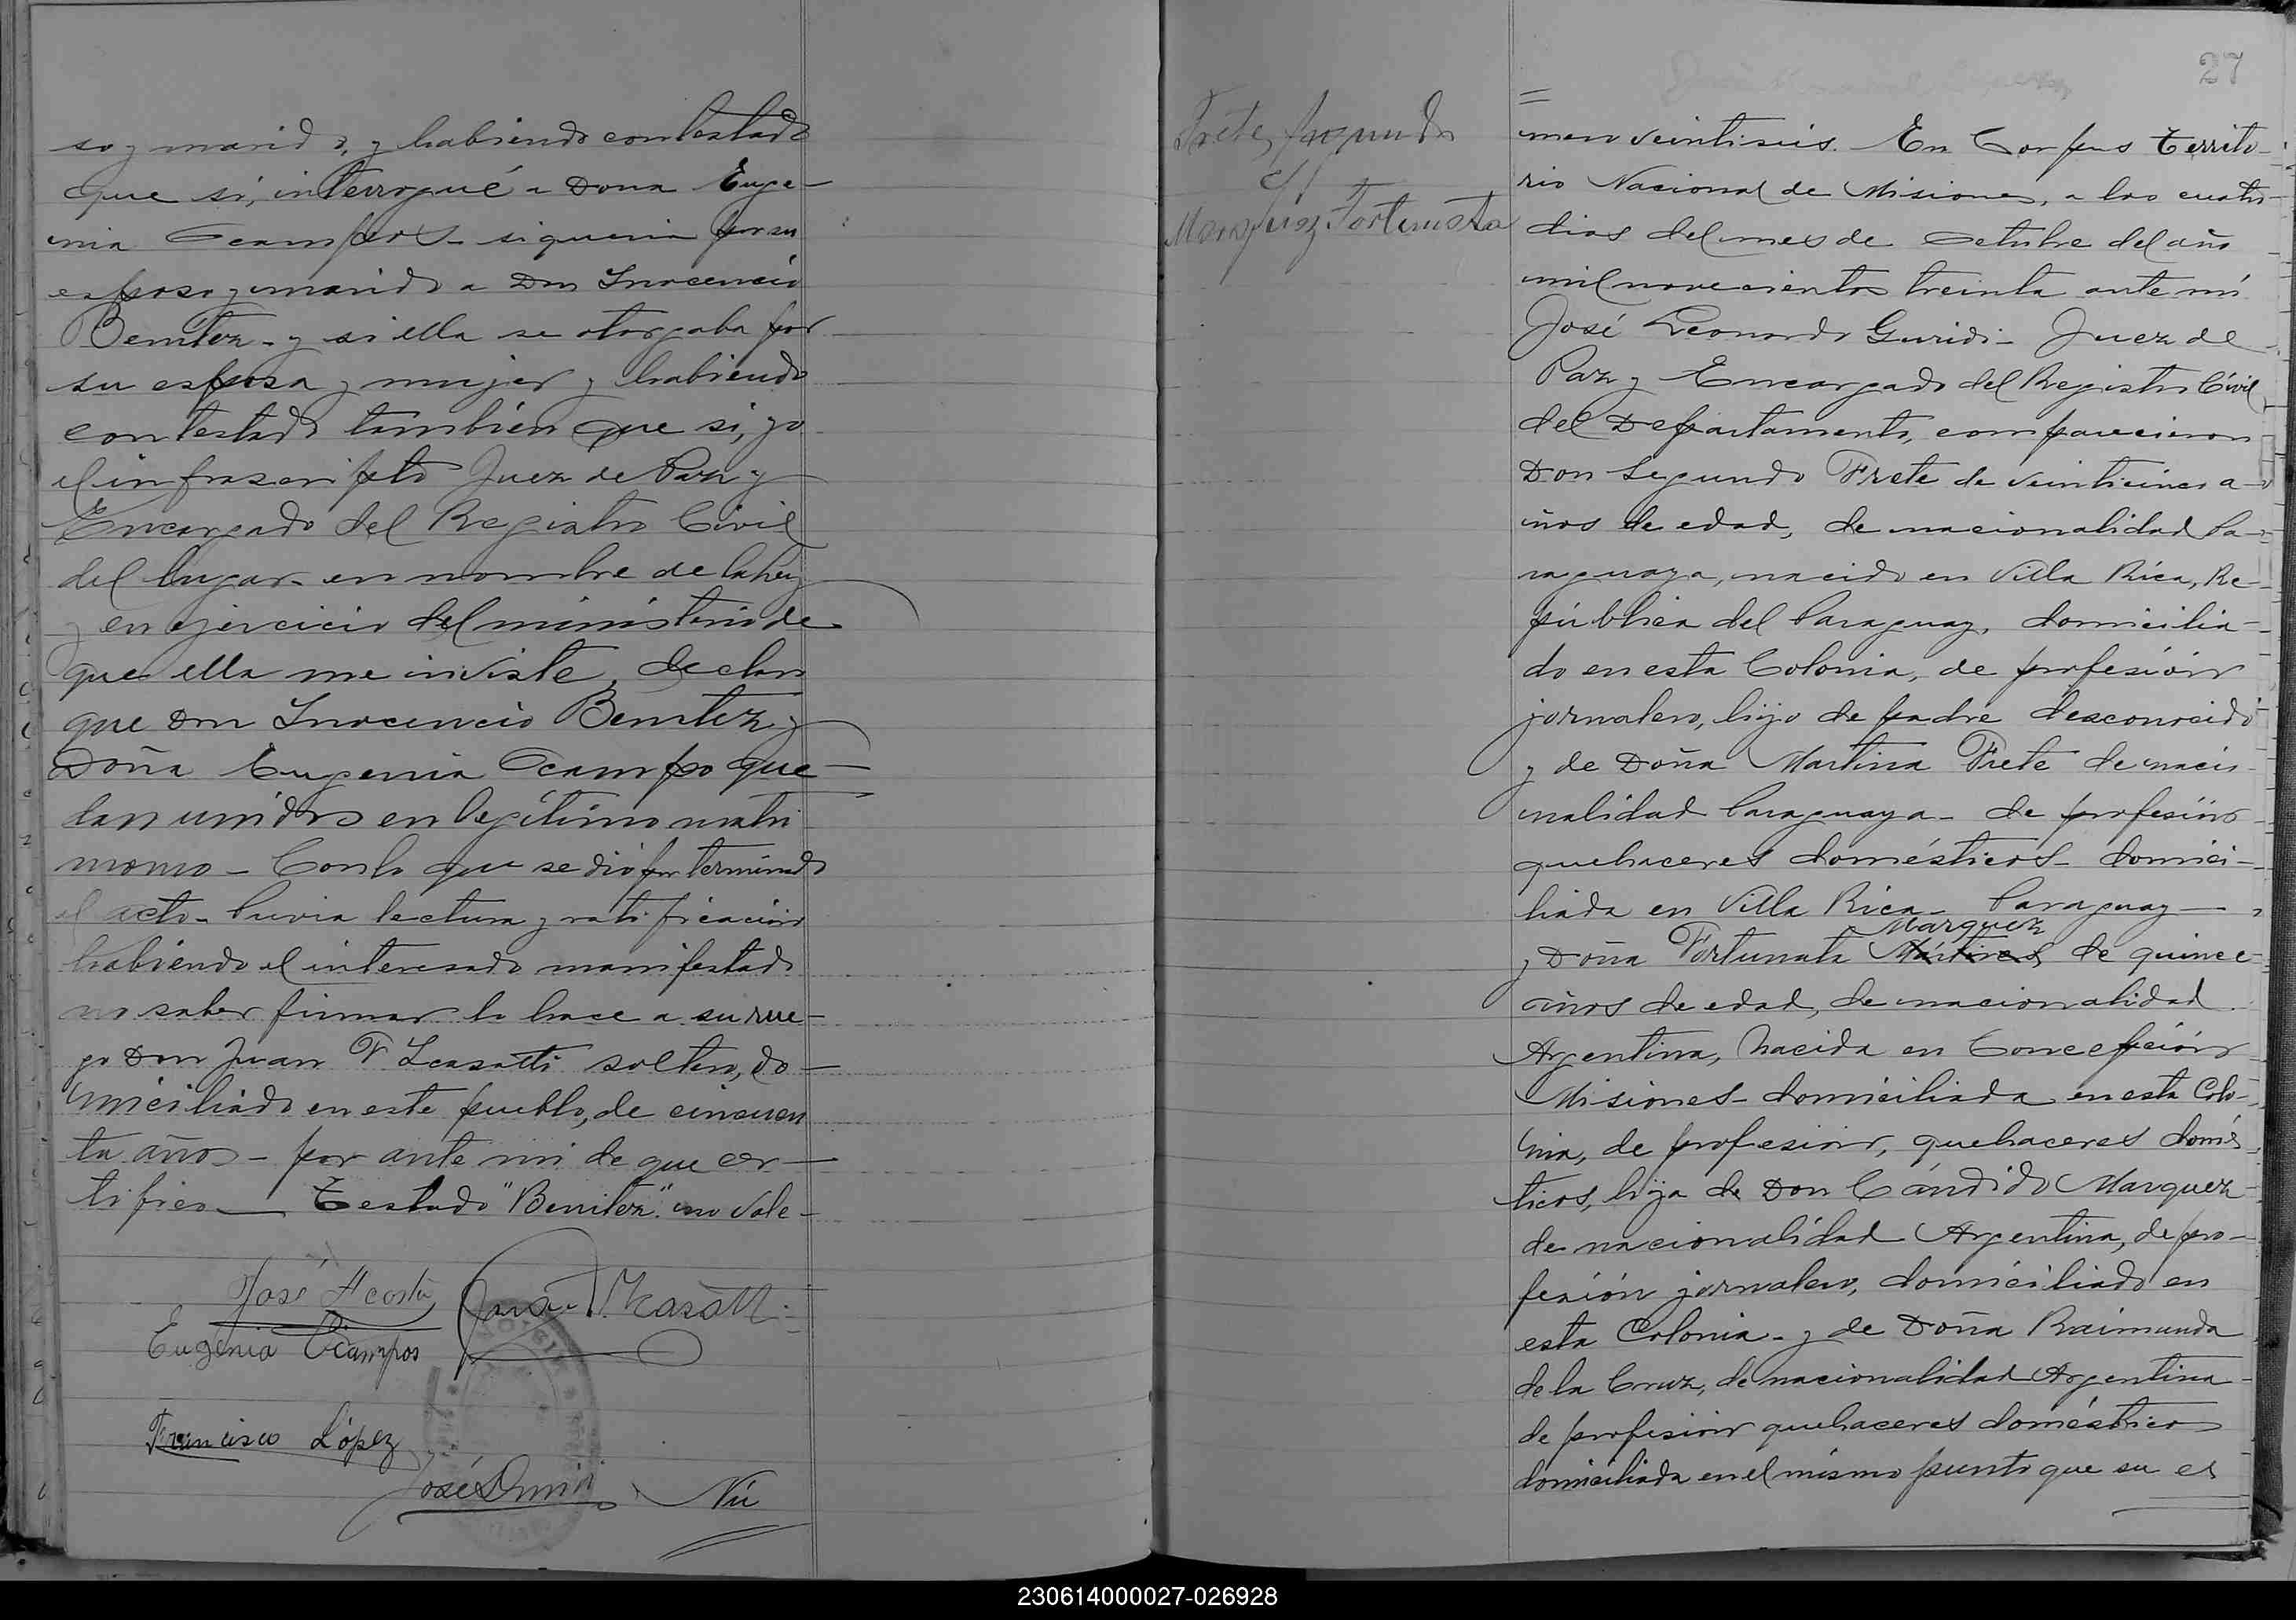 so y marido, y habiendo contestado
que si, interrogué a Doña Euge-
nia Ocampos - si queria por su
esposo y marido a Don Inocencio
Benítez - y si ella se otorgaba por
su esposa y mujer y habiendo
contestado también que si, yo
el infrascripto Juez de Paz y
Encargado del Registro Civil
del lugar - en nombre de la ley
y en ejercicio del ministerio de
que ella me inviste, declaro
que Don Inocencio Benitez y
Doña Eugenia Ocampo que-
dan unidos en legítimo matri
monio - Con lo que se dió por terminado
el acto - Previa lectura y ratificación
habiendo el interesado manifestado
no saber firmar lo hace a su rue-
go Don Juan F soltero, do-
miciliado en este pueblo, de cincuen
ta años - por ante mi de que cer-
tifico — Testado "Benitez" no vale -
José Acosta Juan F.
Eugenia Ocampos
Francisco López
José Nú
27
Frete, Segundo
c/
Marquez Fortunata
mero veintiseis. En Corpus Territo-
rio Nacional de Misiones, a los cuatro
dias del mes de Octubre del año
mil novecientos treinta ante mí
José Leonardo Guridi - Juez de
Paz y Encargado del Registro Civil
del Departamento, comparecieron
Don Segundo Frete de veinticinco a-
ños de edad, de nacionalidad Pa-
raguaya, nacido en Villa Rica, Re-
pública del Paraguay, domicilia-
do en esta Colonia, de profesión
jornalero, hijo de padre desconocido
y de Doña Martina Frete de nacio-
nalidad Paraguaya - de profesión
quehaceres domésticos - domici-
liada en Villa Rica - Paraguay —
Marquez
y Doña Fortunata Mártires de quince
años de edad, de nacionalidad
Argentina, nacida en Concepción
Misiones - domiciliada en esta Colo-
nia, de profesion, quehaceres domés
ticos, hija de Don Cándido Marquez
de nacionalidad Argentina, de pro-
fesión jornalero, domiciliado en
esta Colonia - y de Doña Raimunda
de la Cruz, de nacionalidad Argentina
de profesion quehaceres domésticos
domiciliada en el mismo punto que su es
230614000027-026928